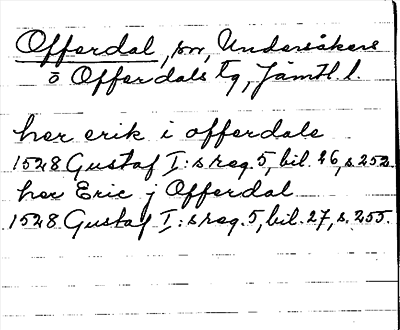 Offerdal, sn, Undersåkers
o Offerdals tg, Jämtl. l.
her erik i offerdale
1528 Gustaf I:s reg. 5, bil. 26, s. 252.
her Eric j Offerdal
1528 Gustaf I:s reg. 5, bil. 27, s. 255.